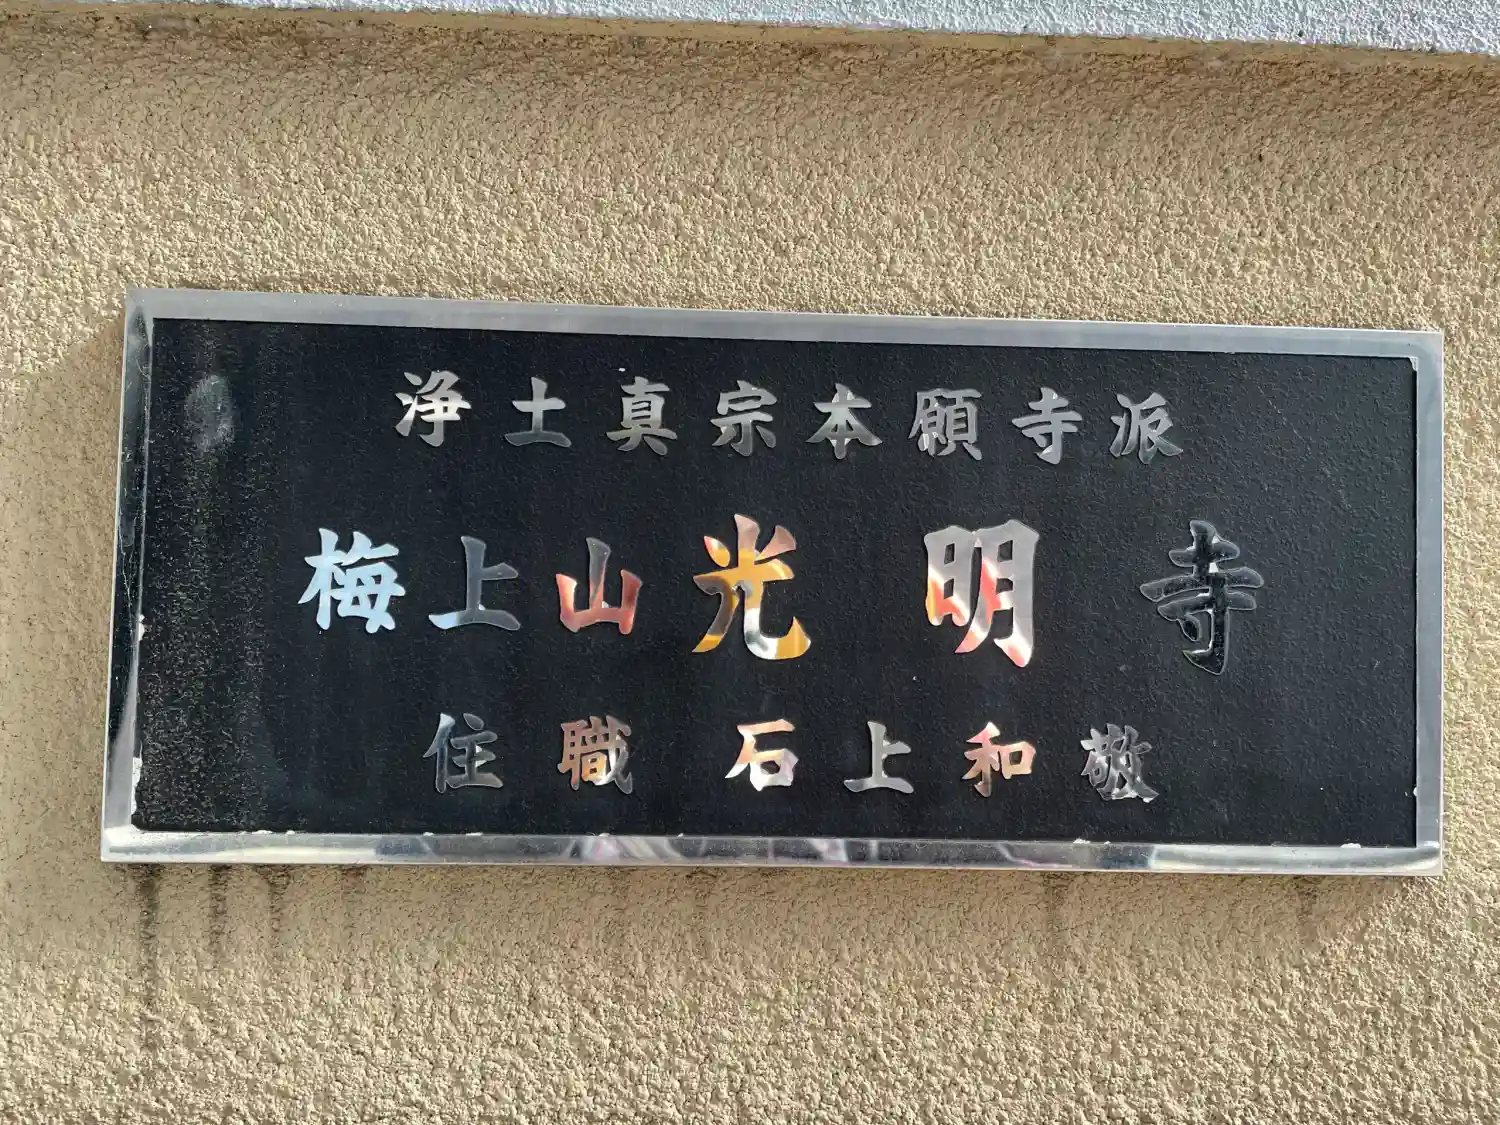 浄土真宗本願寺派
梅上山光明寺
住職 石上和敬